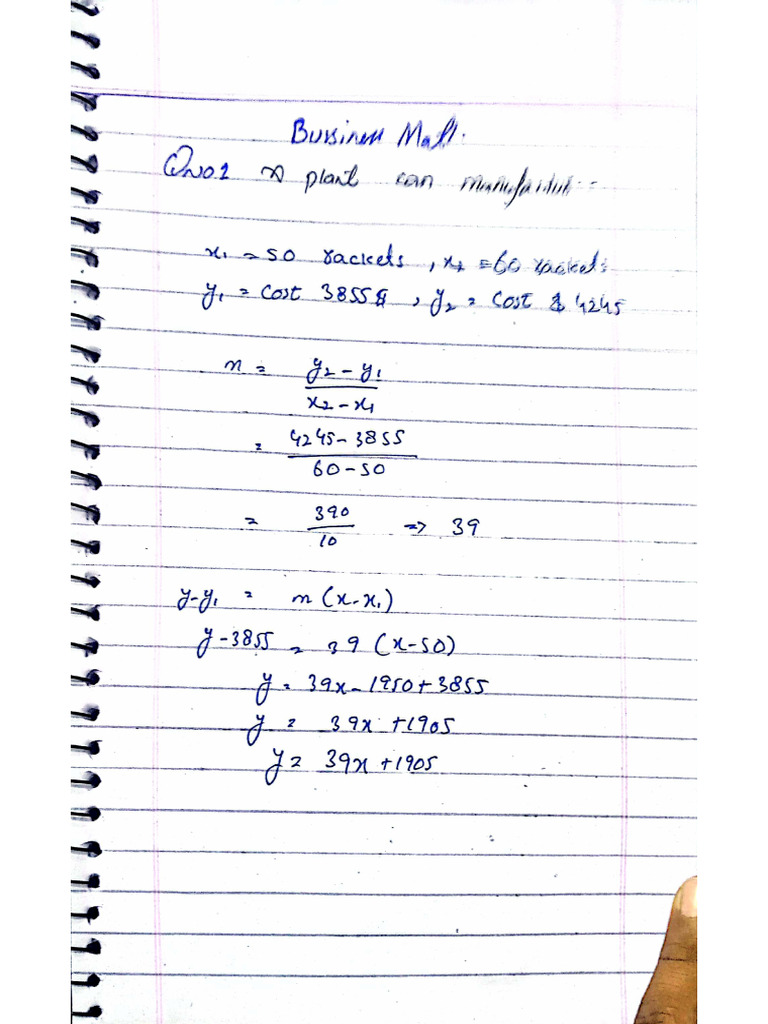 Bussiness Math.
QNo.1 A plant can manufacture --
x₁ = 50 rackets, x₂ = 60 rackets
y₁ = Cost 3855$, y₂ = Cost $4245
m = y₂ - y₁ / x₂ - x₁
= 4245 - 3855 / 60 - 50
= 390 / 10 => 39
y - y₁ = m (x - x₁)
y - 3855 = 39 (x - 50)
y = 39x - 1950 + 3855
y = 39x + 1905
y = 39x + 1905